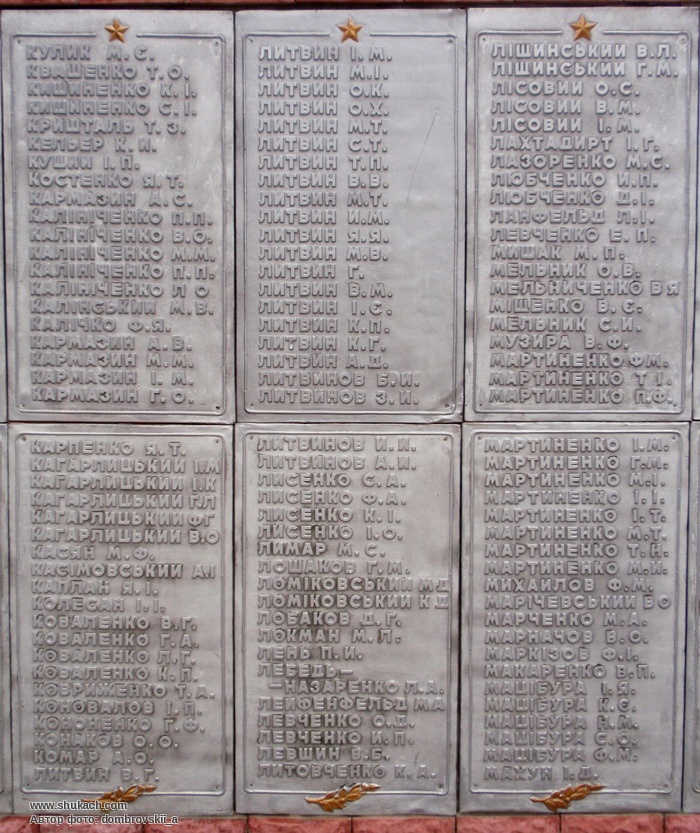 КУЛИК М.Є.
КВАШЕНКО Т.О.
КИШИНЕНКО К.І.
КИШИНЕНКО С.І.
КРИШТАЛЬ Т.З.
КЕЛЬЕР К.И.
КУШИЙ І.П.
КОСТЕНКО Я.Т.
КАРМАЗИН А.С.
КАЛІНІЧЕНКО П.П.
КАЛІНІЧЕНКО В.О.
КАЛІНІЧЕНКО М.М.
КАЛІНІЧЕНКО П.П.
КАЛІНІЧЕНКО Л О
КАЛІНСЬКИЙ М.В.
КАЛІЧКО Ф.Я.
КАРМАЗИН А.В.
КАРМАЗИН М.М.
КАРМАЗИН І.М.
КАРМАЗИН Г.О.
КАРПЕНКО Я.Т.
КАГАРЛИЦЬКИЙ І.М
КАГАРЛИЦЬКИЙ І.К
КАГАРЛИЦЬКИЙ Г.Л
КАГАРЛИЦЬКИЙ Ф Г
КАГАРЛИЦЬКИЙ В.О
КАСЯН М.Ф.
КАСІМОВСЬКИЙ А.І
КАПЛАН Я.І.
КОЛЕСАН І.І.
КОВАЛЕНКО В.Г.
КОВАЛЕНКО Г.А.
КОВАЛЕНКО Л.Г.
КОВАЛЕНКО К.П.
КОВРИЖЕНКО Т.А.
КОНОВАЛОВ І.П.
КОНОНЕНКО Г.Ф.
КОНАКОВ О.О.
КОМАР А.О.
ЛИТВИН В.Г.
ЛИТВИН І.М.
ЛИТВИН М.І.
ЛИТВИН О.К.
ЛИТВИН О.Х.
ЛИТВИН М.Т.
ЛИТВИН С.Т.
ЛИТВИН Т.П.
ЛИТВИН В.В.
ЛИТВИН М.Т.
ЛИТВИН И.М.
ЛИТВИН Я.Я.
ЛИТВИН М.В.
ЛИТВИН Г.
ЛИТВИН В.М.
ЛИТВИН І.Є.
ЛИТВИН К.П.
ЛИТВИН К.Г.
ЛИТВИН А.Д.
ЛИТВИНОВ Б.И.
ЛИТВИНОВ З.И.
ЛИТВИНОВ И.И.
ЛИТВИНОВ А.И.
ЛИСЕНКО С.А.
ЛИСЕНКО Ф.А.
ЛИСЕНКО К.І.
ЛИСЕНКО І.О.
ЛИМАР М.С.
ЛОШАКОВ Г.М.
ЛОМІКОВСЬКИЙ М Д
ЛОМІКОВСЬКИЙ К Д
ЛОБАКОВ Д.Г.
ЛОКМАН М.Л.
ЛЕНЬ П.И.
ЛЕБЕДЬ—
—НАЗАРЕНКО Л.А.
ЛЕЙФЕНФЕЛЬД М А
ЛЕВЧЕНКО О.Д.
ЛЕВЧЕНКО И.П.
ЛЕВШИН В.Б.
ЛИТОВЧЕНКО К.А.
ЛІЩИНСЬКИЙ В.Л.
ЛІЩИНСЬКИЙ Г.М.
ЛІСОВИЙ О.С.
ЛІСОВИЙ В.М.
ЛІСОВИЙ І.М.
ЛАХТАДИРТ І.Г.
ЛАЗОРЕНКО М.С.
ЛЮБЧЕНКО И.П.
ЛЮБЧЕНКО Д.І.
ЛАНФЕЛЬД Л.І.
ЛЕВЧЕНКО Е.П.
МИШАК М.П.
МЕЛЬНИК О.В.
МЕЛЬНИЧЕНКО В Я
МІЩЕНКО В.Є.
МЕЛЬНИК С.И.
МУЗИРА В.Ф.
МАРТИНЕНКО Ф М.
МАРТИНЕНКО Т І.
МАРТИНЕНКО П.Ф.
МАРТИНЕНКО І.М.
МАРТИНЕНКО Г.М.
МАРТИНЕНКО М.І.
МАРТИНЕНКО І.І.
МАРТИНЕНКО І.Т.
МАРТИНЕНКО М.Т.
МАРТИНЕНКО Т.Н.
МАРТИНЕНКО М.И.
МИХАИЛОВ Ф.М.
МАРІЧЕВСЬКИЙ В О
МАРЧЕНКО М.А.
МАРНАЧОВ В.О.
МАРКІЗОВ Ф.І.
МАКАРЕНКО В.П.
МАШІБУРА І.Я.
МАШІБУРА К.Є.
МАШІБУРА Н.М.
МАШІБУРА С.О.
МАШІБУРА Ф.М.
МАХУН І.Д.
www.shukach.com
Автор фото: dombrovskii_a